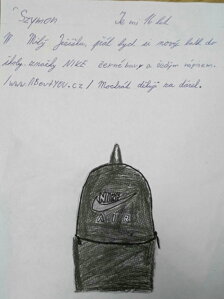 Szymon Je mi 16 let
Milý Ježíšku, přál bych si nový batoh do
školy značky NIKE černé barvy a velkým nápisem.
/www.ABOUTYOU.cz/ Mockrát děkuji za dárek.
NIKE
AIR